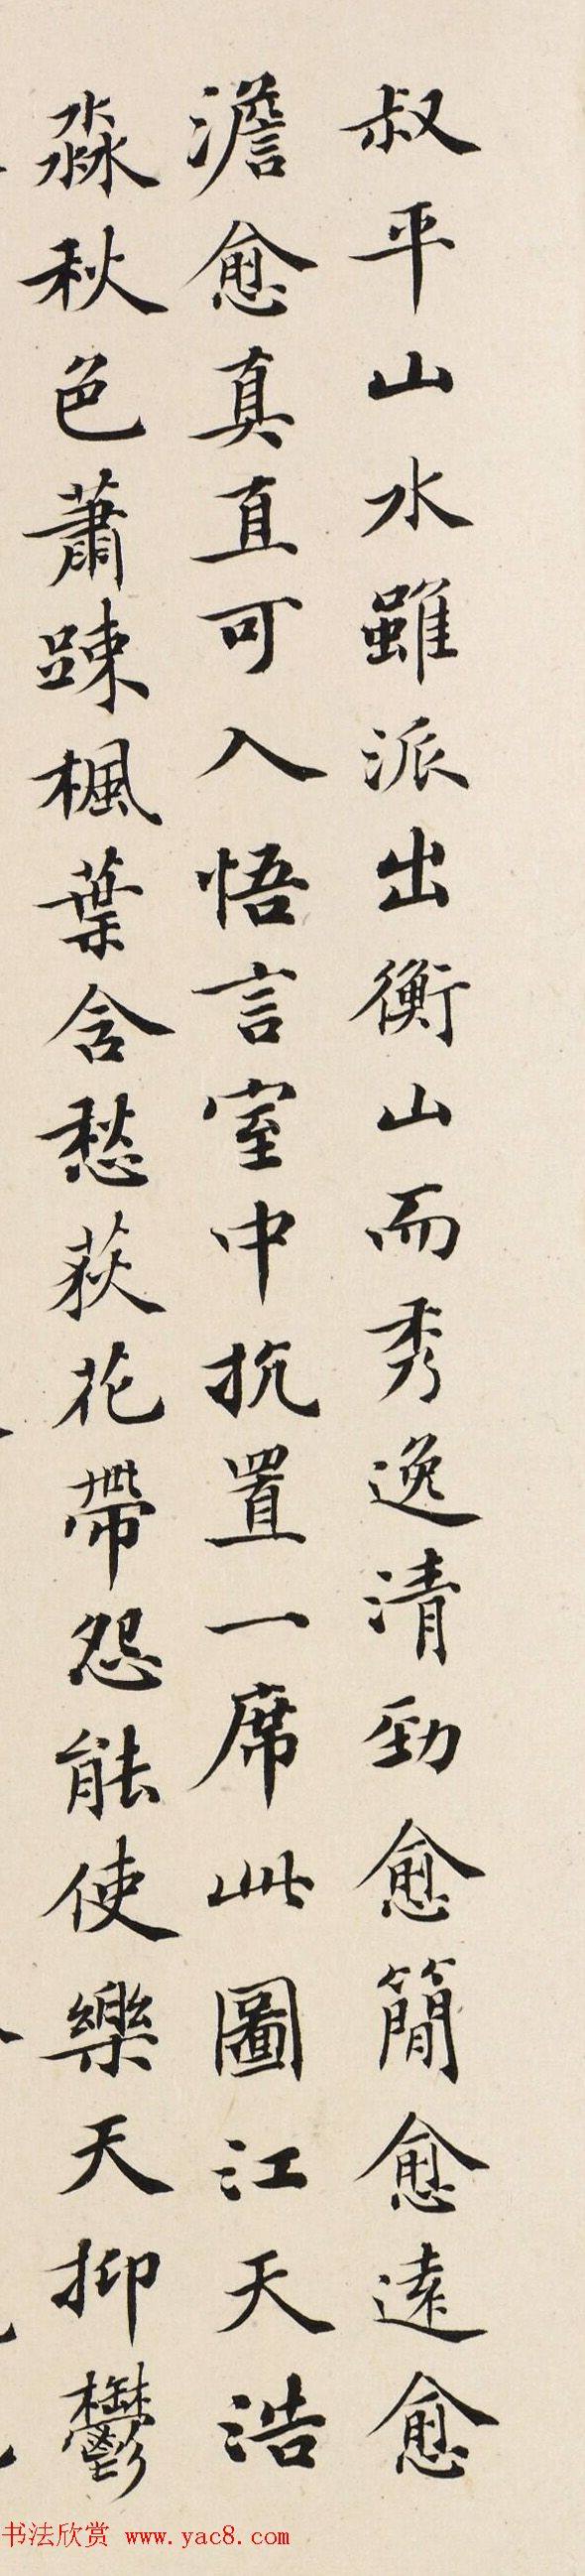 叔平山水雖派出衡山而秀逸清勁愈簡愈遠愈
澹愈真直可入悟言室中抗置一席此圖江天浩
淼秋色蕭踈楓葉含愁荻花帶怨能使樂天抑鬱
书法欣赏 www.yac8.com